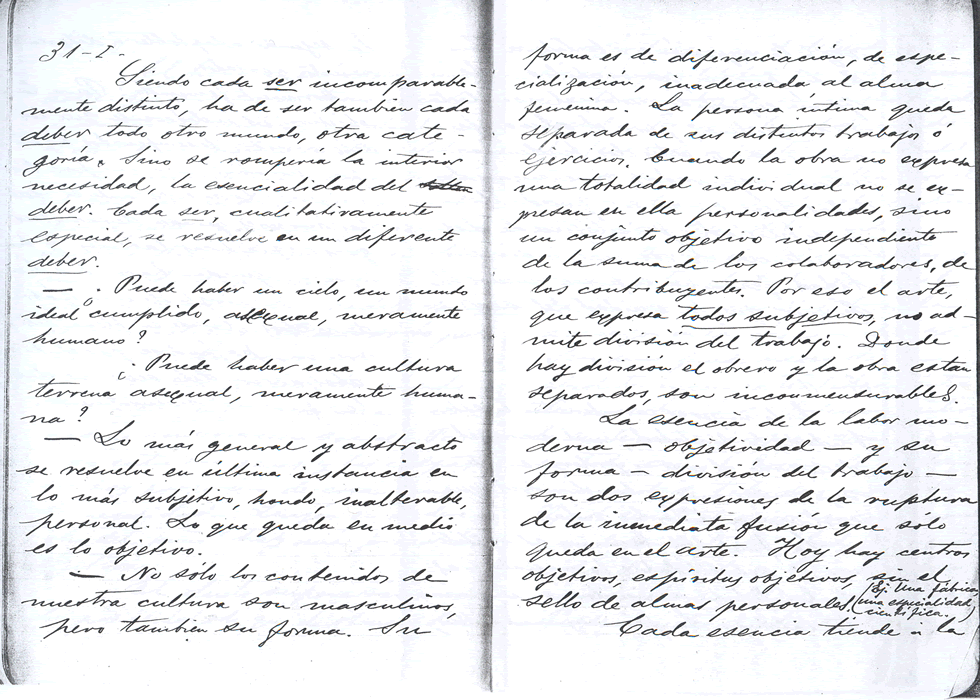 31-I-
Siendo cada ser incomparable-
mente distinto, ha de ser también cada
deber todo otro mundo, otra cate-
goría. Sino se rompería la interior
necesidad, la esencialidad del
deber. Cada ser, cualitativamente
especial, se resuelve en un diferente
deber.
— ¿Puede haber un cielo, un mundo
ideal cumplido, asexual, meramente
humano?
¿Puede haber una cultura
terrena asexual, meramente huma-
na?
— Lo más general y abstracto
se resuelve en última instancia en
lo más subjetivo, hondo, inalterable,
personal. Lo que queda en medio
es lo objetivo.
— No sólo los contenidos de
nuestra cultura son masculinos,
pero también su forma. Su
forma es de diferenciación, de espe-
cialización, inadecuada al alma
femenina. La persona íntima queda
separada de sus distintos trabajos ó
ejercicios. Cuando la obra no expresa
una totalidad individual no se ex-
presan en ella personalidades, sino
un conjunto objetivo independiente
de la suma de los colaboradores, de
los contribuyentes. Por eso el arte,
que expresa todos subjetivos, no ad-
mite división del trabajo. Donde
hay división el obrero y la obra están
separados, son inconmensurables.
La esencia de la labor mo-
derna — objetividad — y su
forma — división del trabajo —
son dos expresiones de la ruptura
de la inmediata fusión que sólo
queda en el arte. Hoy hay centros
objetivos, espíritus objetivos, sin el
sello de almas personales. (Ej. Una fábrica,
una especialidad
científica.
Cada esencia tiende a la